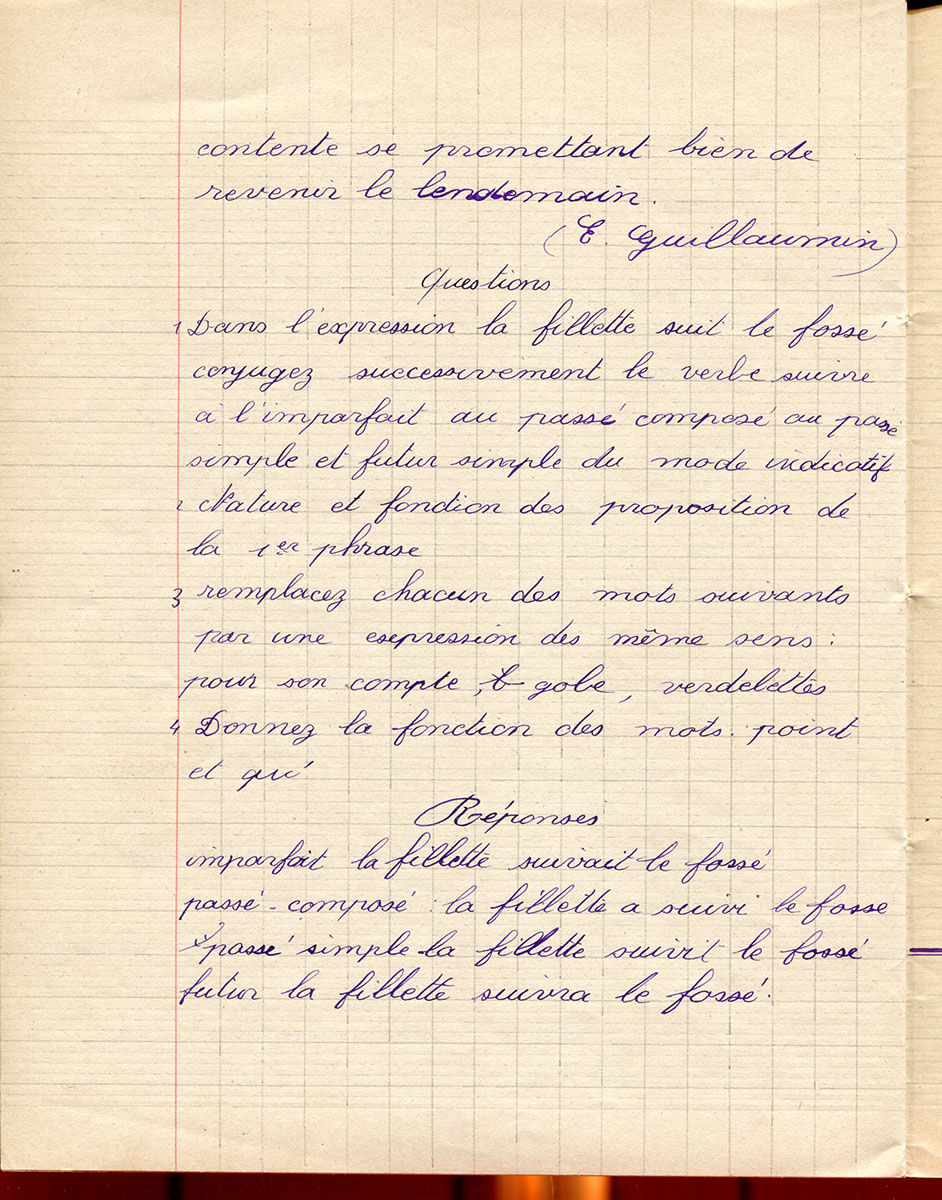 contente se promettant bien de
revenir le lendemain.
(E. Guillaumin)
Questions
1 Dans l'expression la fillette suit le fossé
conjugez successivement le verbe suivre
à l'imparfait au passé composé au passé
simple et futur simple du mode indicatif
2 Nature et fonction des proposition de
la 1er phrase
3 remplacez chacun des mots suivants
par une expression des même sens :
pour son compte, gobe, verdelettes
4 Donnez la fonction des mots. point
et qui
Réponses
imparfait la fillette suivait le fossé
passé-composé : la fillette a suivi le fosse
passé simple la fillette suivit le fossé
futur la fillette suivra le fossé.